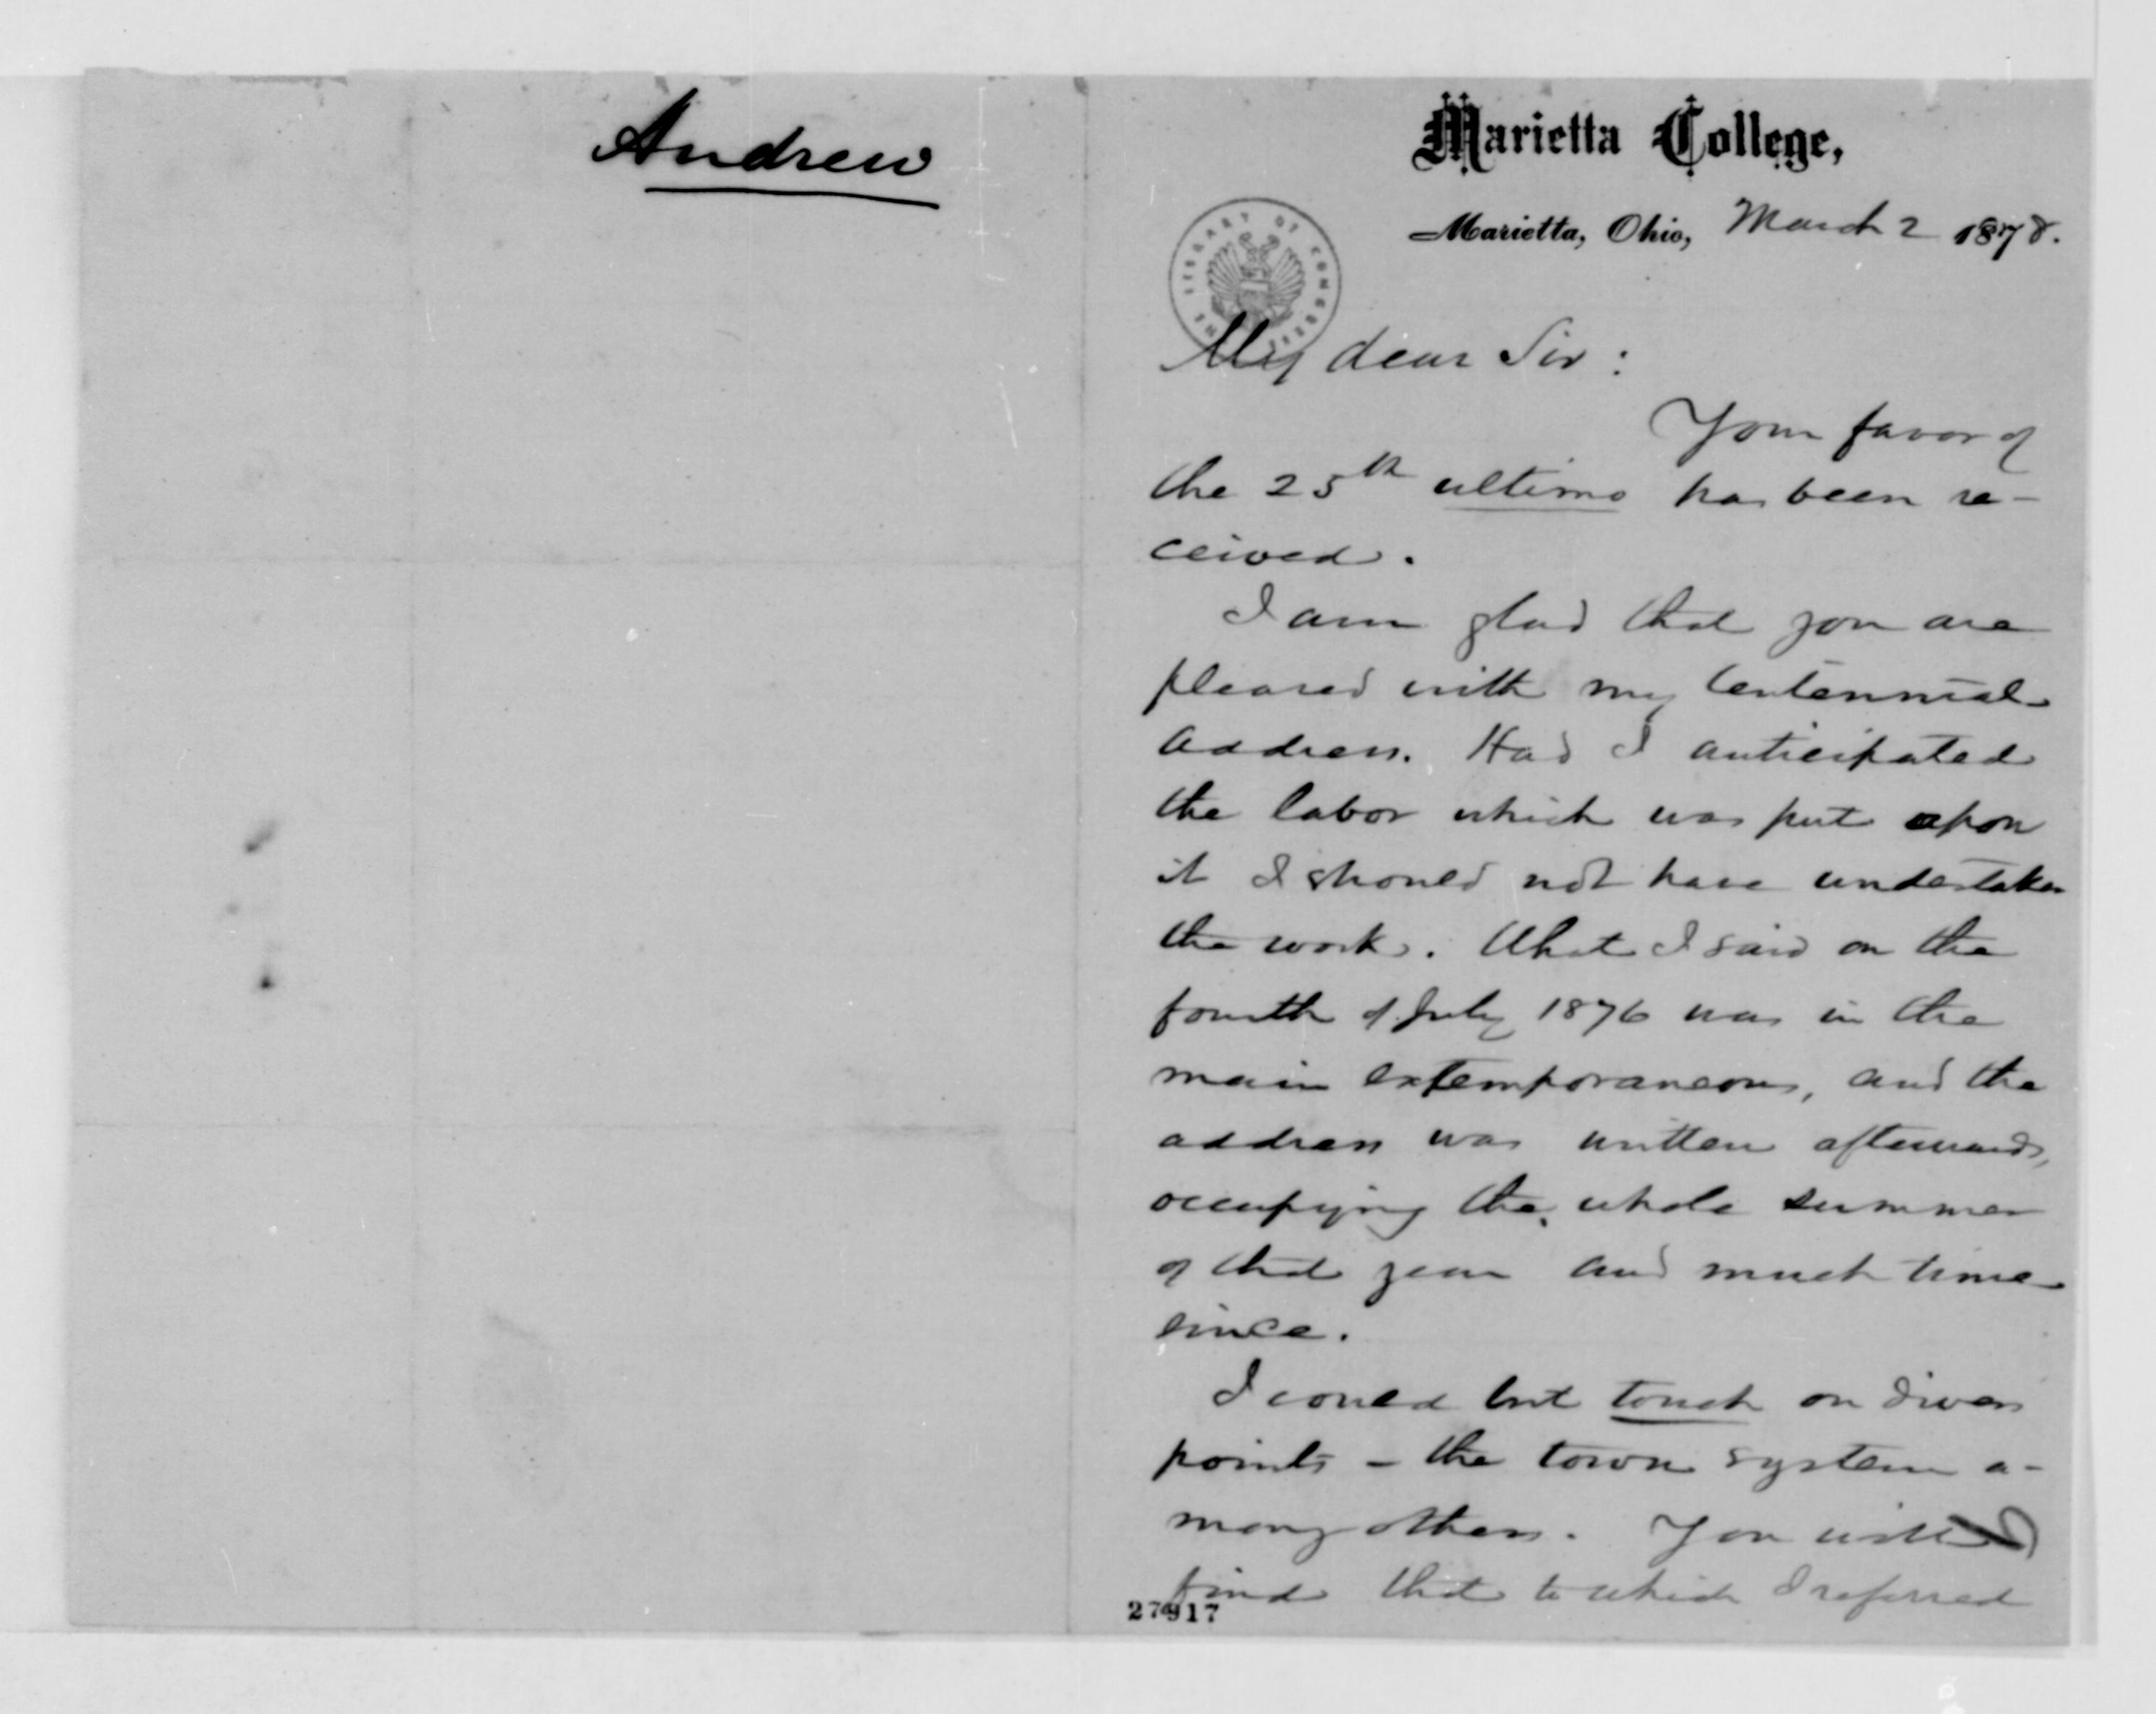 Andrew
Marietta College,
Marietta, Ohio, March 2 1878.
THE LIBRARY OF CONGRESS
My dear Sir:
Your favor of
the 25th ultimo has been re-
ceived.
I am glad that you are
pleased with my Centennial
address. Had I anticipated
the labor which was put upon
it I should not have undertaken
the work. What I said on the
fourth of July 1876 was in the
main extemporaneous, and the
address was written afterwards,
occupying the whole summer
of that year and much time
since.
I could but touch on divers
points - the town system a-
mong others. You will
find that to which I referred
27917